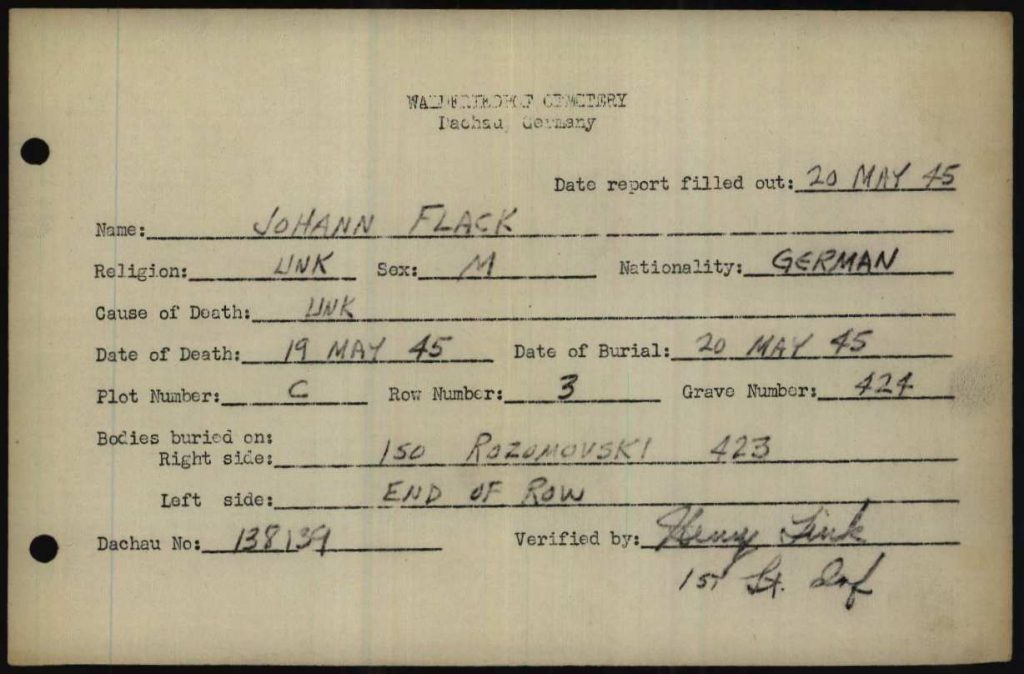 WALDFRIEDHOF CEMETERY
Dachau, Germany
Date report filled out: 20 MAY 45
Name: JOHANN FLACK
Religion: UNK Sex: M Nationality: GERMAN
Cause of Death: UNK
Date of Death: 19 MAY 45 Date of Burial: 20 MAY 45
Plot Number: C Row Number: 3 Grave Number: 424
Bodies buried on:
Right side: ISO ROZOMOVSKI 423
Left side: END OF ROW
Dachau No: 138139 Verified by: Henry Fink
1st Lt. Inf